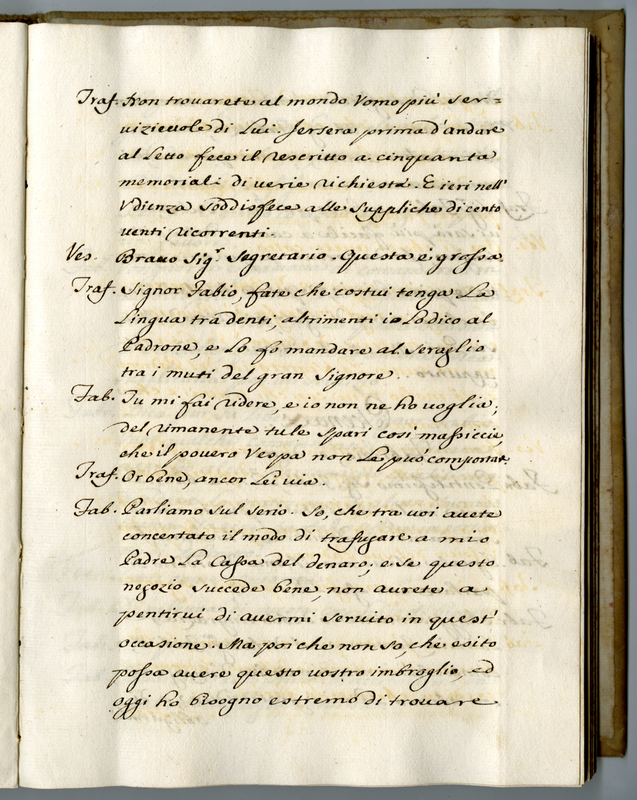 Traf. Non trovarete al mondo Vomo più ser=
vizievole di Lui. Jersera prima d'andare
al Letto fece il rescritto a cinquanta
memoriali di uerie richieste. E ieri nell'
Vdienza soddisfece alle suppliche di cento
uenti ricorrenti.
Ves. Brauo Sig.r Segretario. Questa è grossa.
Traf. Signor Fabio, fate che costui tenga La
Lingua tra denti, altrimenti io Lo dico al
Padrone, e Lo fo mandare al seraglio
tra i muti del gran Signore.
Fab. Tu mi fai ridere, e io non ne ho uoglia;
del rimanente tu le spari cosi massiccie,
che il pouero Vespa non Le può comportar.
Traf. Or bene, ancor Lei uia.
Fab. Parliamo sul serio. So, che tra uoi auete
concertato il modo di trafugare a mio
Padre La Cassa del denaro; e se questo
negozio succede bene, non aurete a
pentirui di auermi seruito in quest'
occasione. Ma poiche non so, che esito
possa auere questo uostro imbroglio, ed
oggi ho bisogno estremo di trouare